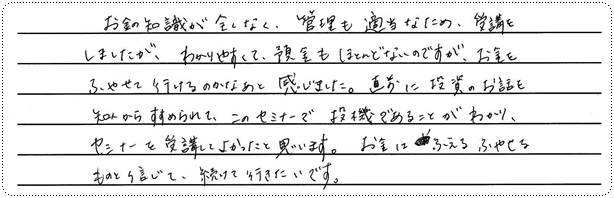 お金の知識が全くなく、管理も適当なため、受講を
しましたが、わかりやすくて、預金もほとんどないのですが、お金を
ふやせて行けるのかなあと感じました。直前に投資のお話を
知人からすすめられて、このセミナーで投機であることがわかり、
セミナーを受講してよかったと思います。お金はふえるふやせる
ものと信じて、続けて行きたいです。